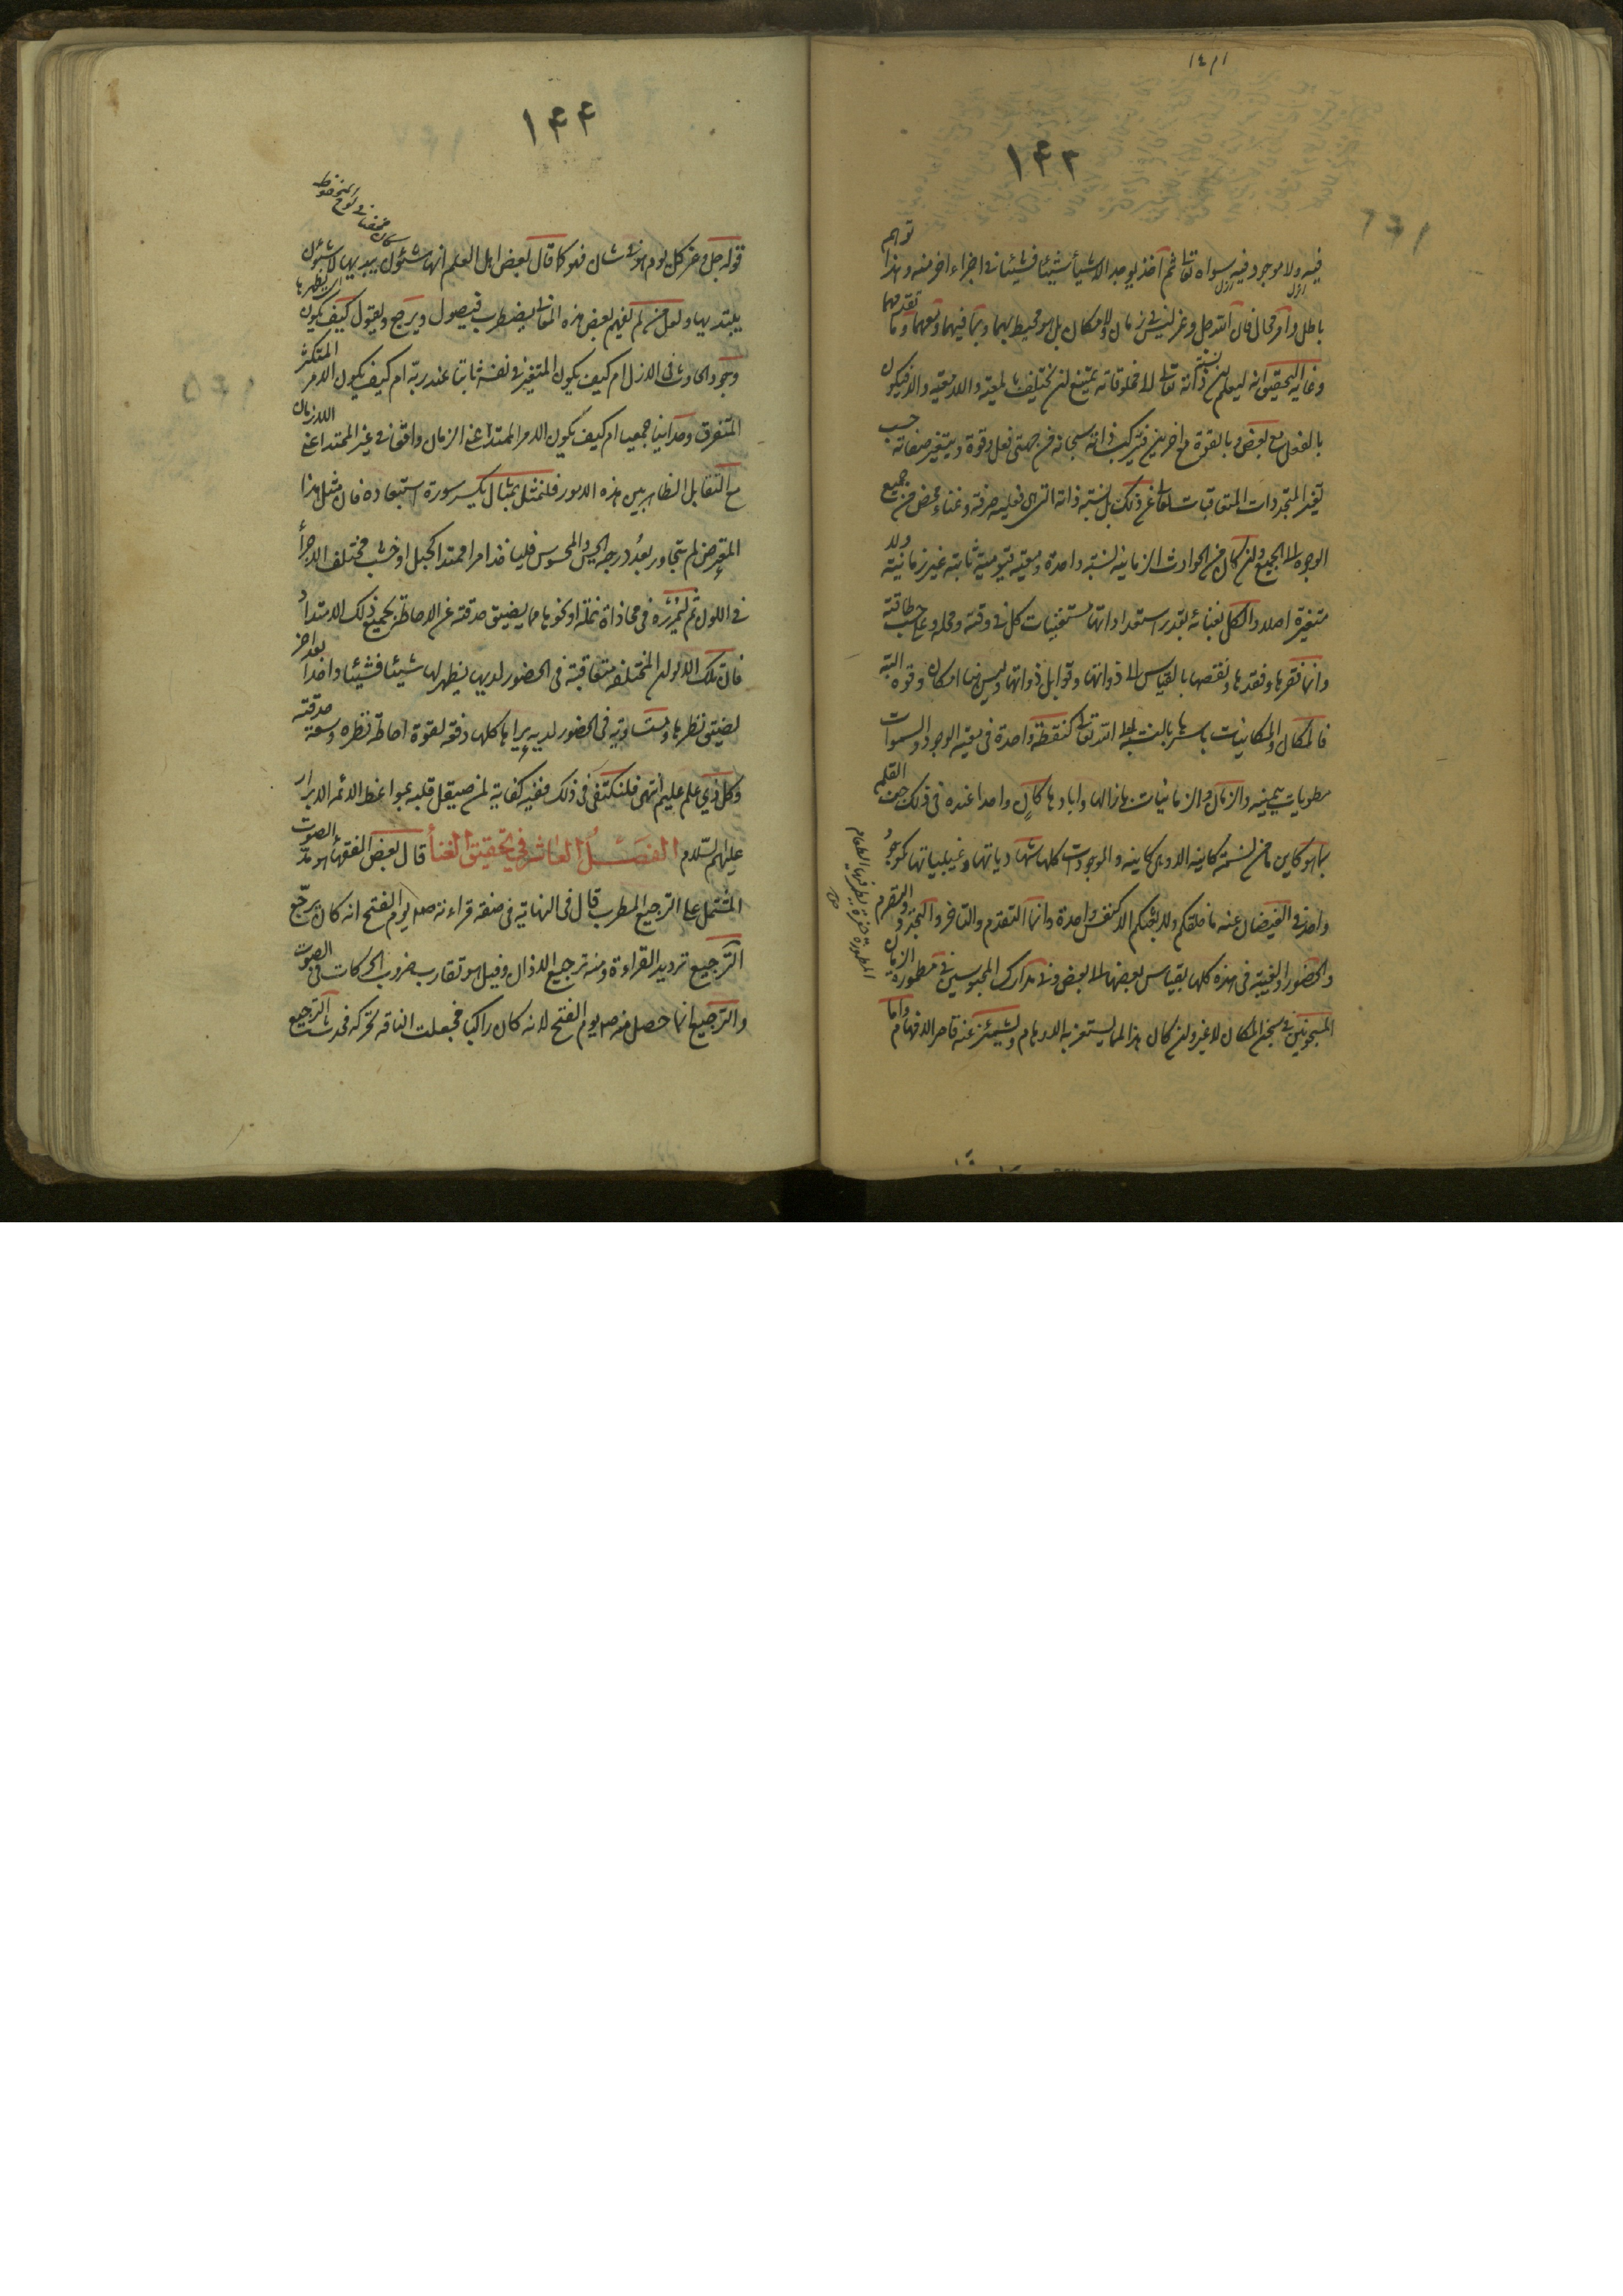 ١٤٣
فيه ولا موجود فيه سواه تعالى ثم اخذ يوجد الاشياء شيئا فشيئا في اجزاء اخر منه وهذا توهم
باطل وامر محال فان الله جل وعز ليس في زمان ولا مكان بل هو محيط بهما وبما فيهما ومعهما وما تقدمهما
وغاية التحقيق انه ليعلم ان نسبة ذاته تعالى الى مخلوقاته يمتنع ان يختلف بالمعية واللامعية والا فيكون
بالفعل مع بعض وبالقوة مع اخرين فيتركب ذاته سبحانه من جهتي فعل وقوة ويتغير صفاته حسب
تغير المتجددات المتعاقبات تعالى عن ذلك بل نسبة ذاته التي هي فعلية صرفة وغناء محض من جميع
الوجوه الى الجميع وان كان من الحوادث الزمانية نسبة واحدة ومعية قيومية ثابتة غير زمانية ولا
متغيرة اصلا والكل بغنائه بقدر استعداداتها مستغنيات كل في وقته ومحله وعلى حسب طاقته
وانما فقرها وفقدها ونقصها بالقياس الى ذواتها وقوابل ذواتها وليس هناك امكان وقوة البتة
فالمكان والمكانيات باسرها بالنسبة الى الله تعالى كنقطة واحدة في معية الوجود والسموات
مطويات بيمينه والزمان والزمانيات بازالها وابادها كان واحد عنده في ذلك جف القلم
بما هو كاين ما من نسمة كاينة الا وهي كاينة والموجودات كلها شهادياتها وغيبياتها كموجود
واحد في الفيضان عنه ما خلقكم ولا بعثكم الا كنفس واحدة وانما التقدم والتاخر والتجدد والتصرم
والحضور والغيبة في هذه كلها بقياس بعضها الى بعض وفي مدارك المحبوسين في مطمورة الزمان
المسجونين في سجن المكان لا غير وان كان هذا لمما يستغربه الاوهام ويشمئز عنه قاصر الافهام واما
المطمورة حفرة يطمر فيها الطعام
١٤٤
قوله جل وعز كل يوم هو في شان فهو كما قال بعض اهل العلم انها شئون يبديها لا شئون
يبتديها ولعل من لم يفهم بعض هذه المعاني يضطرب فيصول ويرجع ويقول كيف يكون
وجود الحادث في الازل ام كيف يكون المتغير في نفسه ثابتا عند ربه ام كيف يكون الامر المتكثر
المتفرق وحدانيا جمعيا ام كيف يكون الامر الممتد اعني الزمان واقعا في غير الممتد اعني اللازمان
مع التقابل الظاهر بين هذه الامور فلنمثل بمثال يكسر سورة استبعاده فان مثل هذا
المتعرض لم يتجاوز بعد درجة الحس والمحسوس فلياخذ امرا ممتدا كحبل او خشب مختلف الاجزاء
في اللون ثم ليمرره في محاذاة نملة او نحوها مما يضيق حدقته عن الاحاطة بجميع ذلك الامتداد
فان تلك الالوان المختلفة متعاقبة في الحضور لديها يظهر لها شيئا فشيئا واحدا بعد اخر
لضيق نظرها ومتساوية في الحضور لديه يراها كلها دفعة لقوة احاطة نظره وسعة حدقته
وكل ذي علم عليم انتهى فلنكتفى في ذلك ففيه كفاية لمن صيقل قلبه بمواعظ الائمة الابرار
عليهم السلام الفصل العاشر في تحقيق الغناء قال بعض الفقهاء هو مد الصوت
المشتمل على الترجيع المطرب قال في النهاية في صفة قراءته ص يوم الفتح انه كان يرجع
الترجيع ترديد القراءة ومنه ترجيع الاذان وقيل هو تقارب ضروب الحركات في الصوت
والترجيع انما حصل منه ص يوم الفتح لانه كان راكبا فجعلت الناقة تحركه فحدث الترجيع